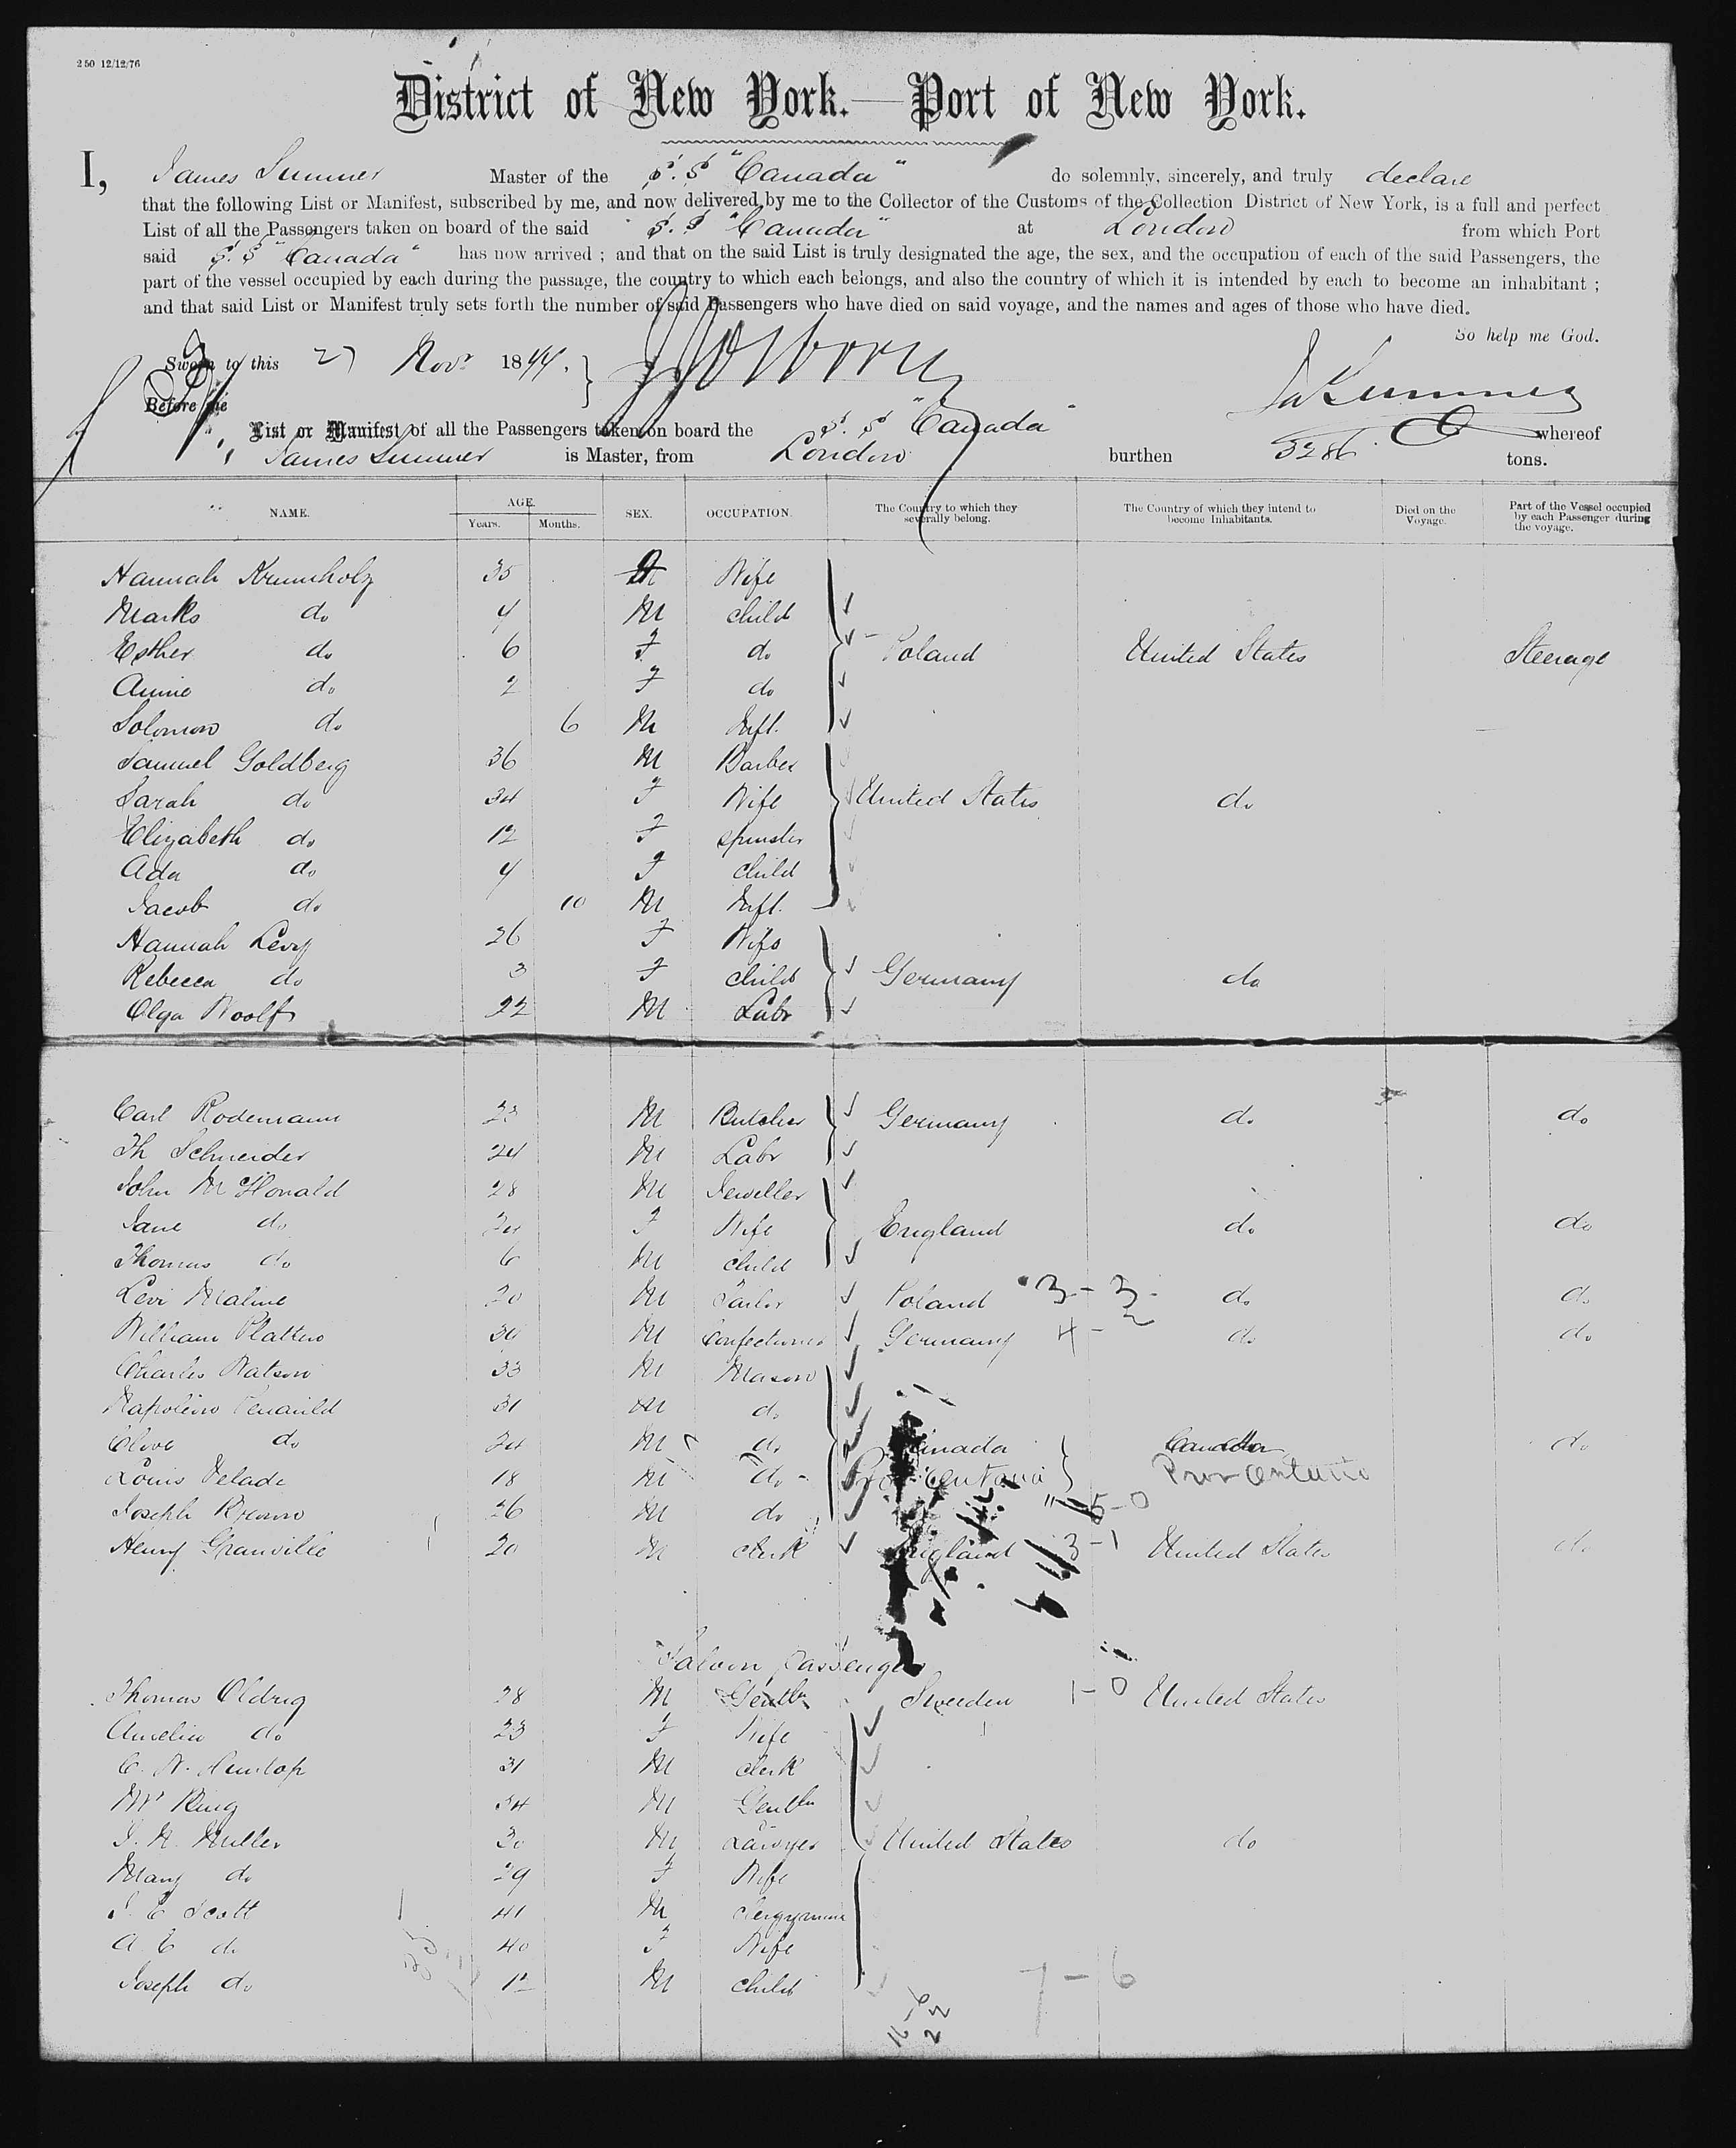 250 12/12/76
District of New York.—Port of New York.
I, James Sumner Master of the S.S "Canada" do solemnly, sincerely, and truly declare
that the following List or Manifest, subscribed by me, and now delivered by me to the Collector of the Customs of the Collection District of New York, is a full and perfect
List of all the Passengers taken on board of the said S.S "Canada" at London from which Port
said S.S "Canada" has now arrived ; and that on the said List is truly designated the age, the sex, and the occupation of each of the said Passengers, the
part of the vessel occupied by each during the passage, the country to which each belongs, and also the country of which it is intended by each to become an inhabitant ;
and that said List or Manifest truly sets forth the number of said Passengers who have died on said voyage, and the names and ages of those who have died.
So help me God.
Sworn to this 27 Novr 18
Before me
List or Manifest of all the Passengers taken on board the S.S "Canada" whereof
James Sumner is Master, from London burthen 3286 tons.
NAME. AGE. SEX. OCCUPATION. The Country to which they severally belong. The Country of which they intend to become Inhabitants. Died on the Voyage. Part of the Vessel occupied by each Passenger during the voyage.
Years. Months.
Hannah Krumholz 35 Wife
Marks do 4 M child
Esther do 6 F do Poland United States Steerage
Annie do 2 F do
Solomon do 6 M Inft.
Samuel Goldberg 36 M Barber
Sarah do 34 F Wife United States do
Elizabeth do 12 F Spinster
Ada do 4 F child
Jacob do 10 M Inft.
Hannah Levy 26 F Wife
Rebecca do 3 F child Germany do
Olga Woolf 22 M Labr
Carl Rodemann 23 M Butcher Germany do do
Th Schneider 24 M Labr
John McDonald 28 M Jeweller
Jane do 24 F Wife England do do
Thomas do 6 M child
Levi Maline 20 M Tailor Poland 3-3- do do
William Platten 34 M Confectioner Germany 4-2 do do
Charles Watson 33 M Mason
Napoleon 31 M do
Olive do 24 M do Canada Canada do
Louis 18 M do Prov Ontario Prov Ontario
Joseph Brown 26 M do 5-0
Henry Granville 20 M clerk England 3-1 United States do
Saloon Passengers
Thomas Oldrug 28 M Gentln Sweden 1-0 United States
Amelia do 23 F Wife
C. W. Dunlop 31 M clerk
Mr King 34 M Gentln
J. H. Muller 30 M Lawyer United States do
Mary do 29 F Wife
J. E Scott 41 M Clergyman
A. E do 40 F Wife
Joseph do 12 M child 7-6